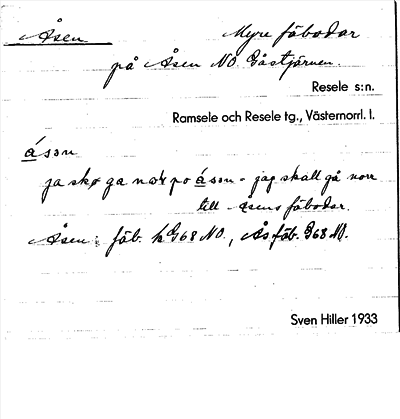 Åsen Myre fäbodar
på Åsen NO Gåstjärnen.
Resele s:n.
Ramsele och Resele tg., Västernorrl. l.
åsən
ja skø ga noꝛ po åsən - jag skall gå norr
till Åsens fäbodar.
Åsen: fäb. kG68NO., Ås fäb. G68 NO.
Sven Hiller 1933